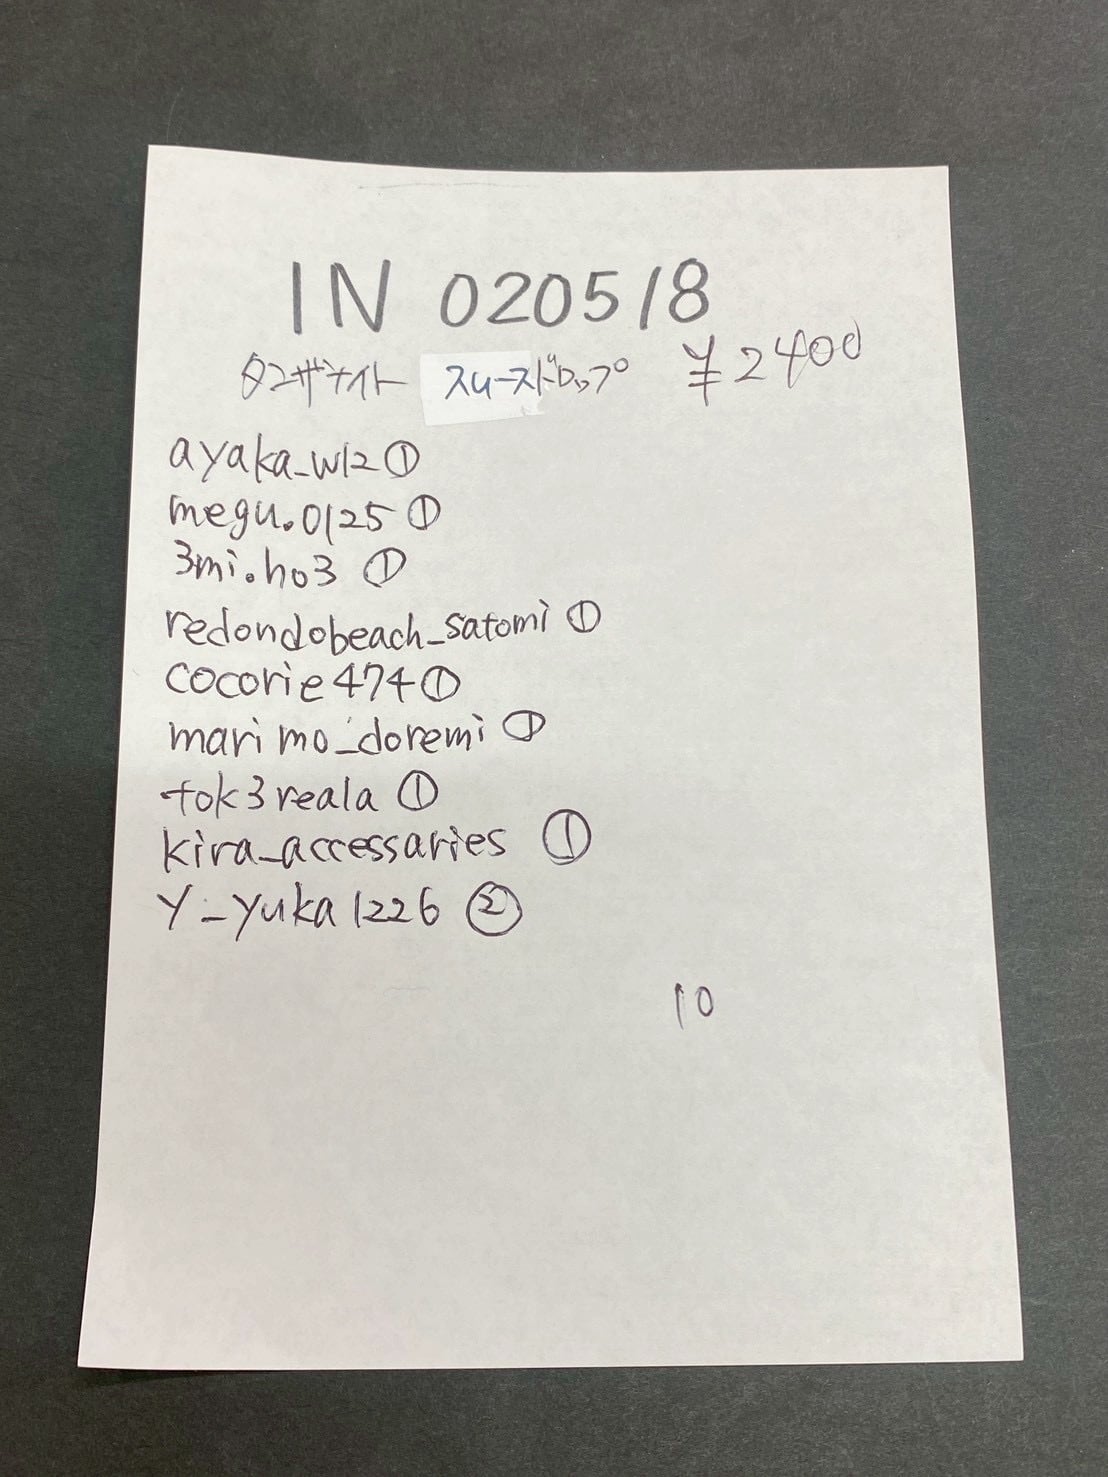 IN 020518
タンザナイト スムースドロップ ¥2400
ayaka_w12 ①
megu.0125 ①
3mi.ho3 ①
redondobeach_satomi ①
cocorie474 ①
marimo_doremi ①
tok3reala ①
kira_accessaries ①
Y_yuka1226 ②
10